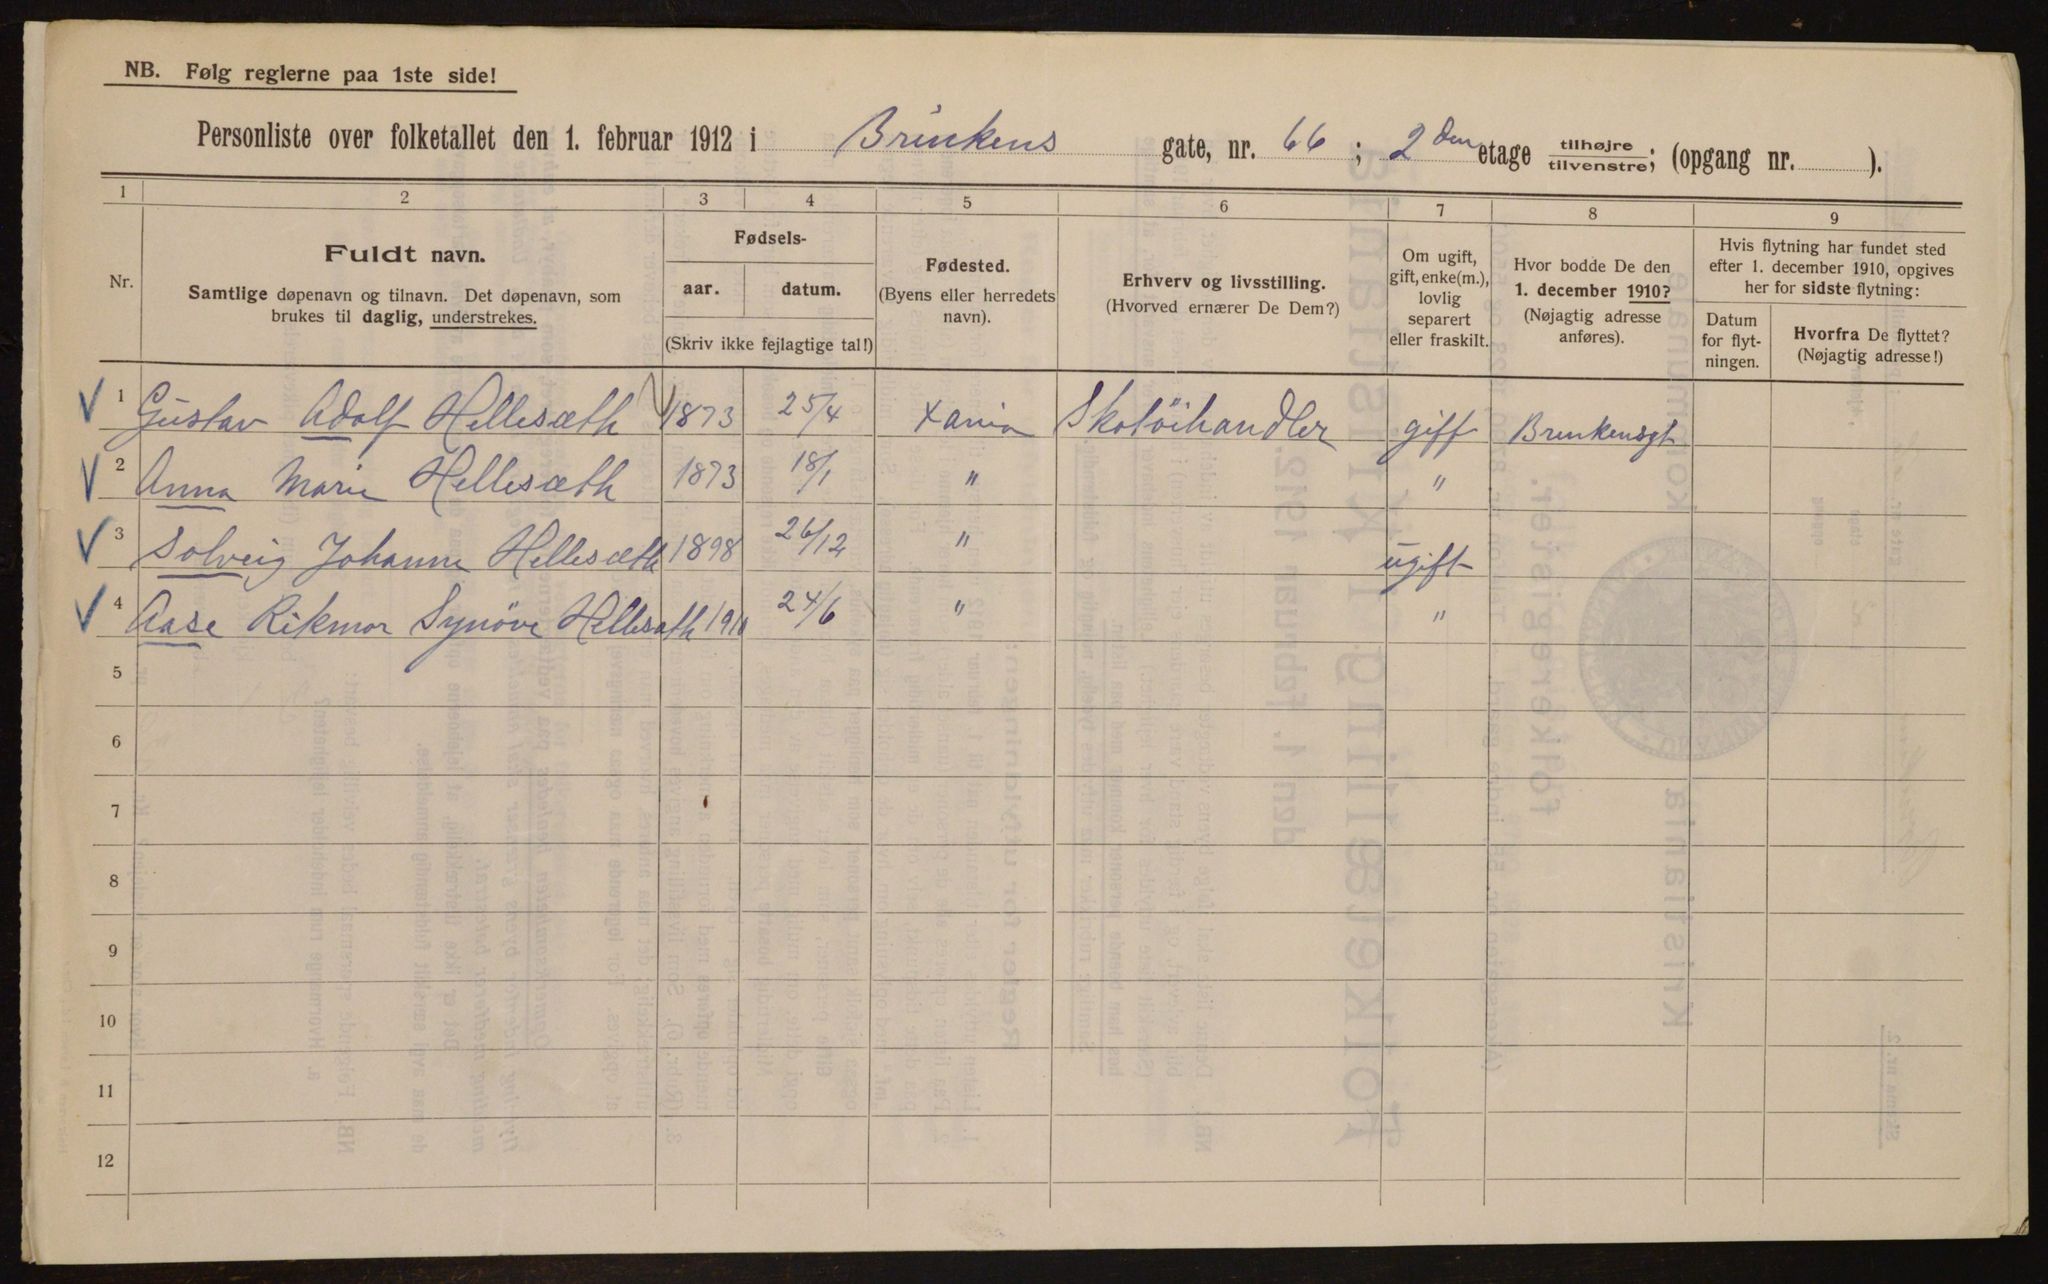 NB. Følg reglerne paa 1ste side!
Personliste over folketallet den 1. februar 1912 i Brinkens gate, nr. 66; 2den etage tilhøjre/tilvenstre; (opgang nr. ).
1 2 3 4 5 6 7 8 9
Nr.
Fuldt navn.
Samtlige døpenavn og tilnavn. Det døpenavn, som
brukes til daglig, understrekes.
Fødsels-
aar. datum.
(Skriv ikke fejlagtige tal!)
Fødested.
(Byens eller herredets
navn).
Erhverv og livsstilling.
(Hvorved ernærer De Dem?)
Om ugift,
gift, enke(m.),
lovlig
separert
eller fraskilt.
Hvor bodde De den
1. december 1910?
(Nøjagtig adresse
anføres).
Hvis flytning har fundet sted
efter 1. december 1910, opgives
her for sidste flytning:
Datum
for flyt-
ningen.
Hvorfra De flyttet?
(Nøjagtig adresse!)
1 Gustav Adolf Hellesæth 1873 25/4 Xania Skotöihandler gift Brinkensgt
2 Anna Marie Hellesæth 1873 18/1 " "
3 Solveig Johanne Hellesæth 1898 26/12 " ugift
4 Aase Rikmor Synöve Hellesæth 1910 24/6 " "
5
6
7
8
9
10
11
12